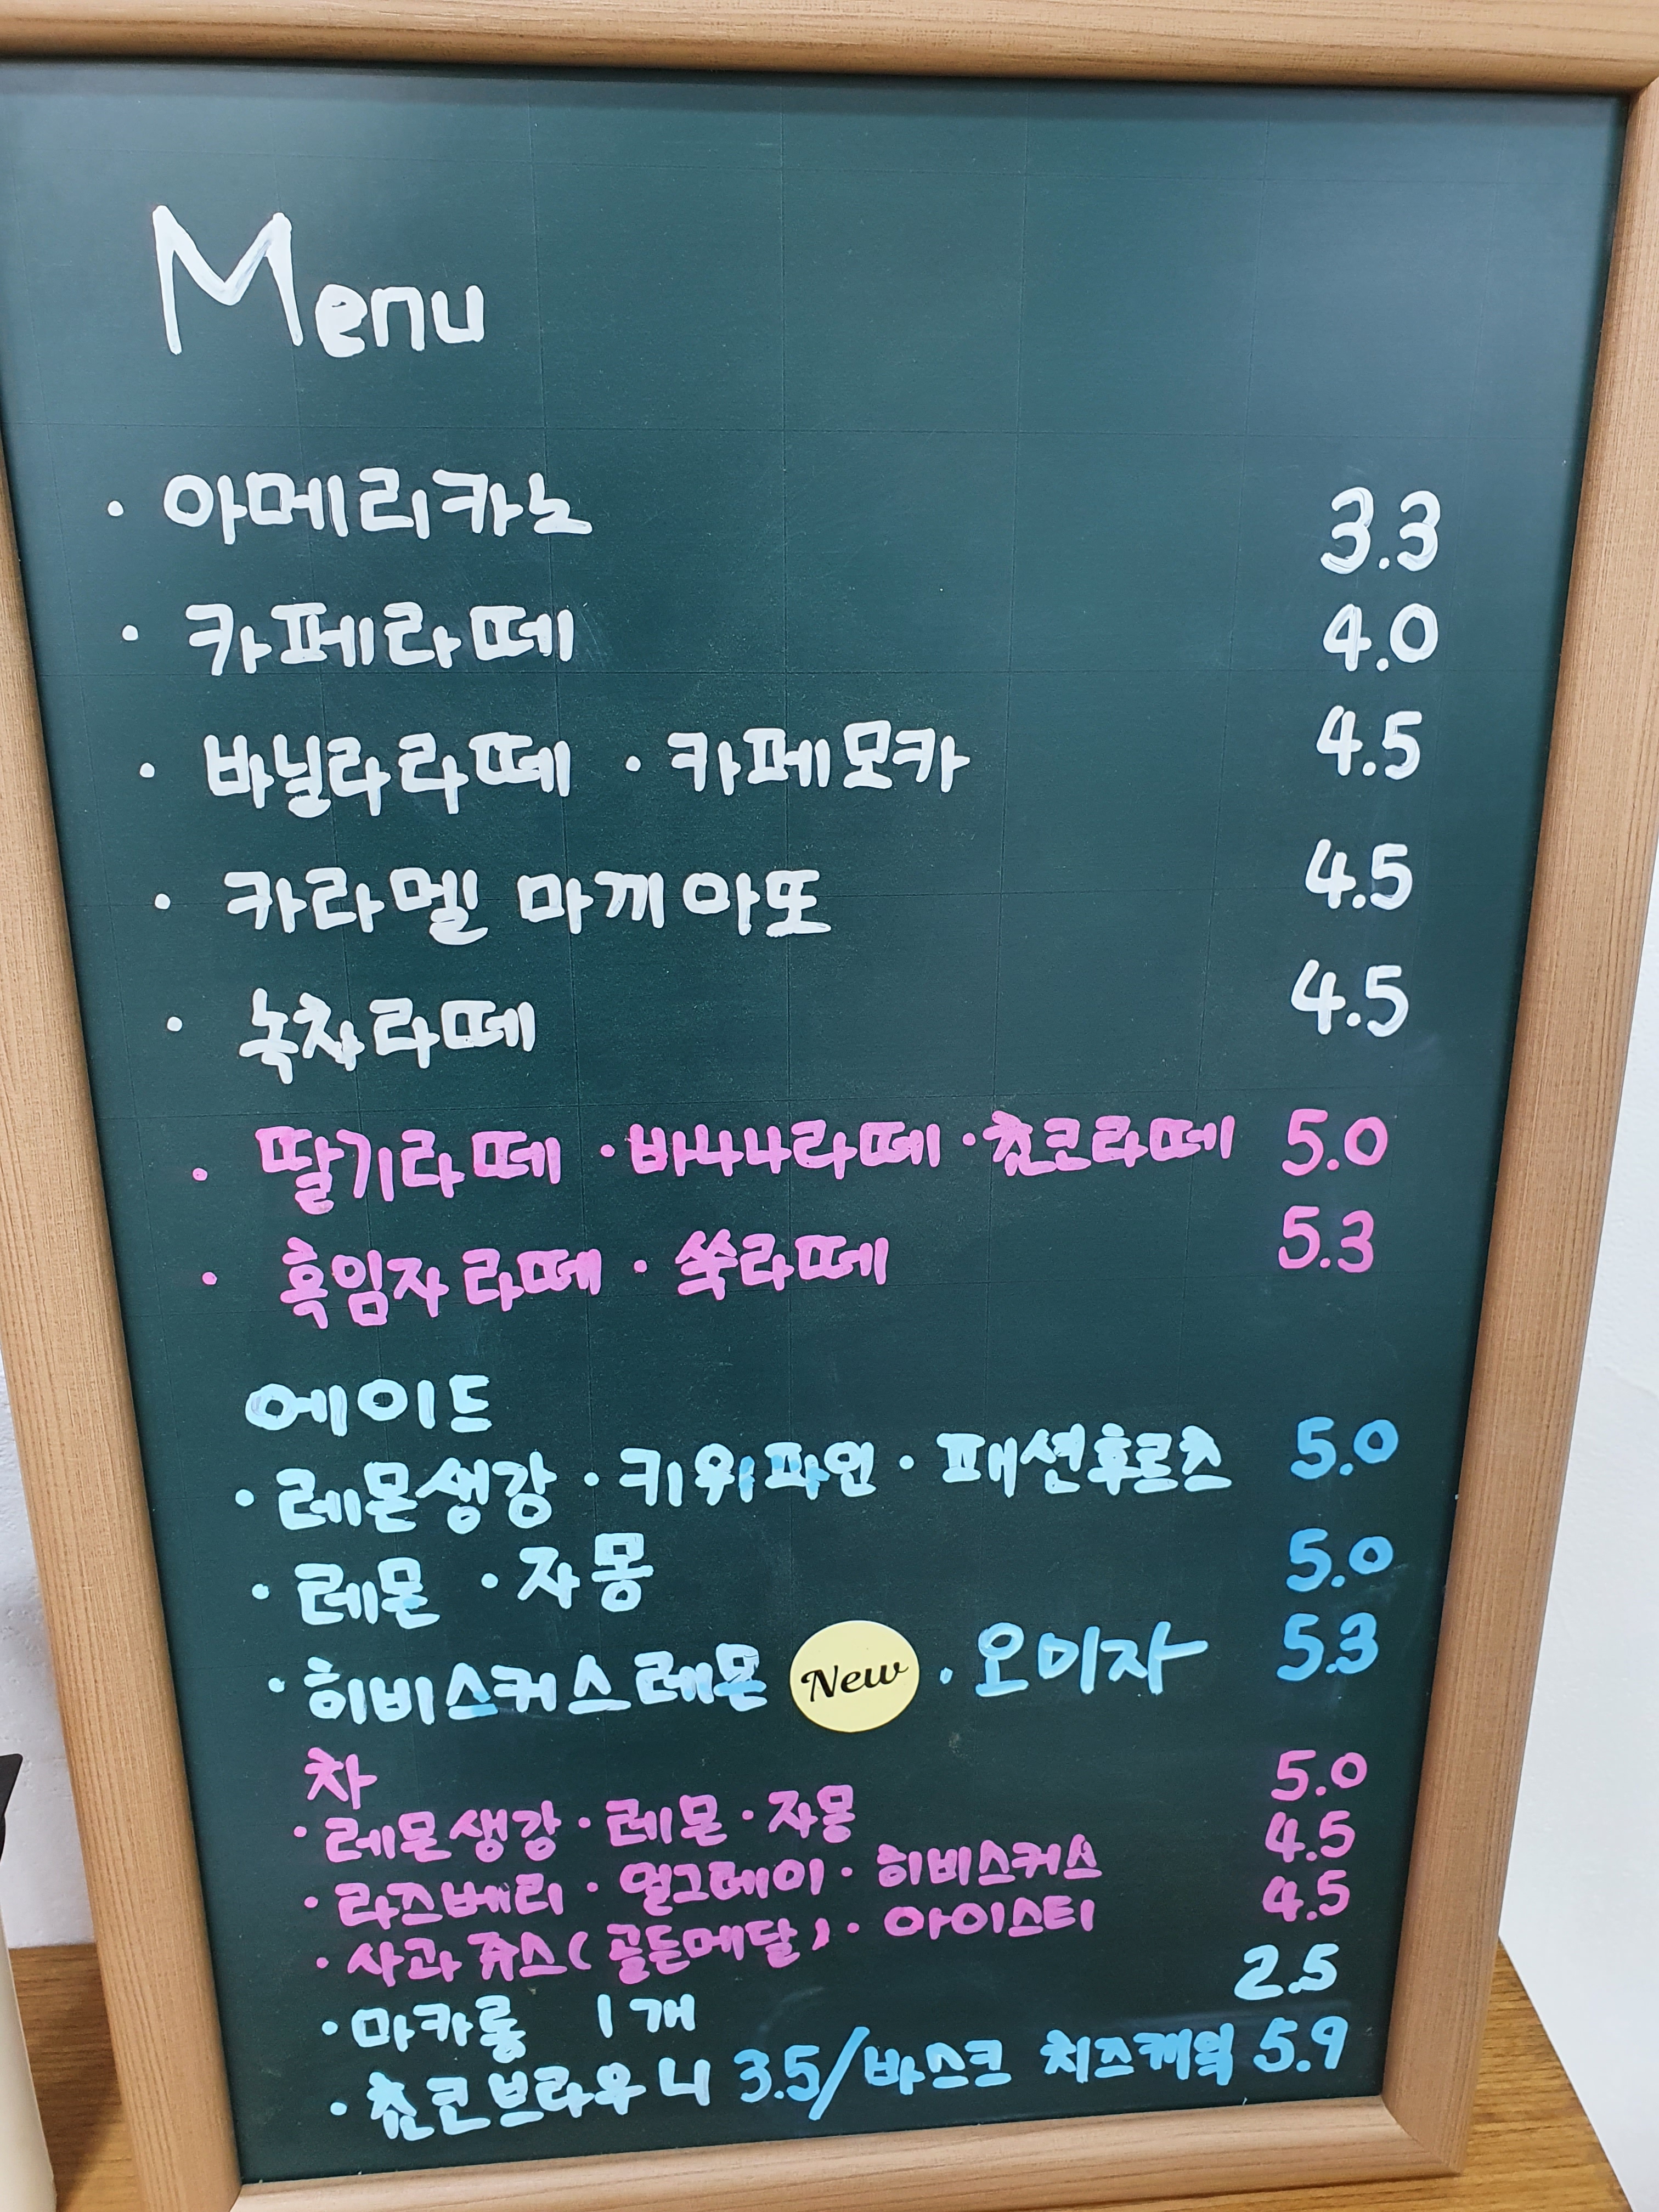 Menu
· 아메리카노 3.3
· 카페라떼 4.0
· 바닐라라떼 · 카페모카 4.5
· 카라멜 마끼아또 4.5
· 녹차라떼 4.5
· 딸기라떼 · 바나나라떼 · 쵸코라떼 5.0
· 흑임자라떼 · 쑥라떼 5.3
에이드
· 레몬생강 · 키위파인 · 패션후르츠 5.0
· 레몬 · 자몽 5.0
· 히비스커스레몬 New · 오미자 5.3
차
· 레몬생강 · 레몬 · 자몽 5.0
· 라즈베리 · 얼그레이 · 히비스커스 4.5
· 사과쥬스(골든메달) · 아이스티 4.5
· 마카롱 1개 2.5
· 쵸코브라우니 3.5/바스크 치즈케익 5.9